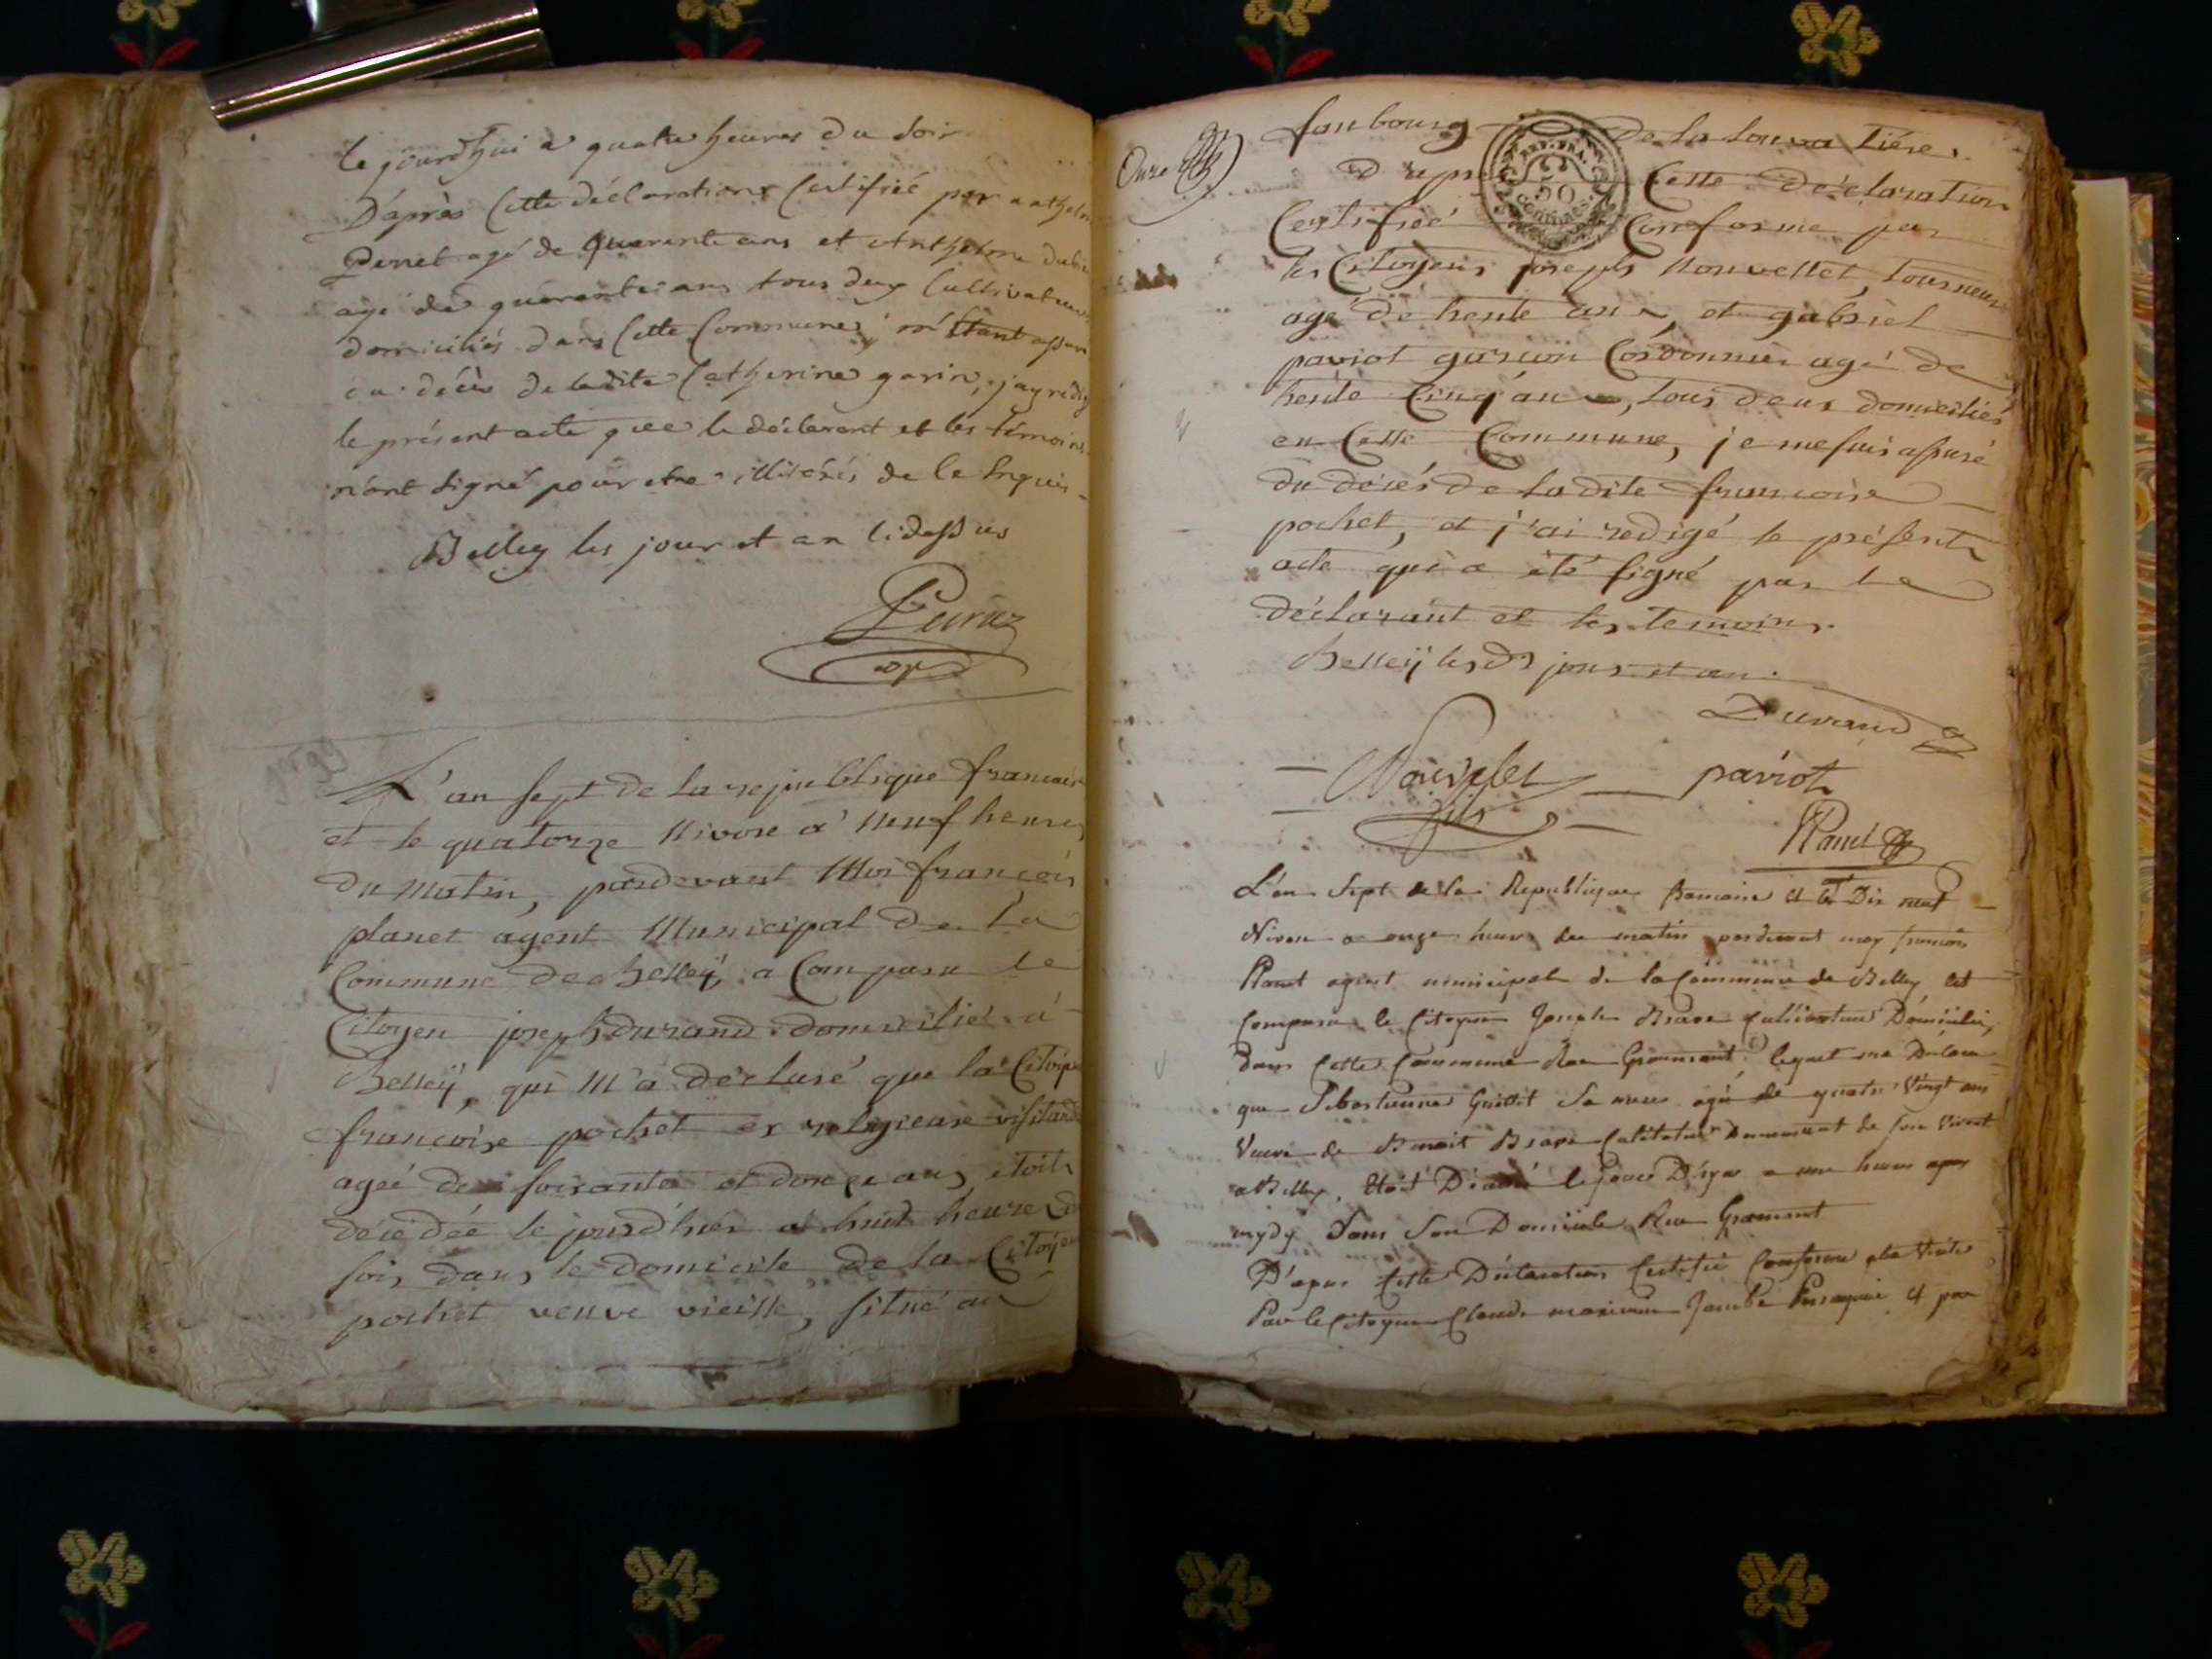 le jourdhui a quatre heures du soir
D'après cette déclarations certifiée par anthelm
Peret agé de quarente ans et Anthelme
agé de quarente ans tous deux cultivateurs
domiciliés dans cette commune, m'étant assuré
du décès de ladite Catherine garin, j'ay redig
le présent acte que le déclarant et les témoins
n'ont signé pour etre illitérés de le enquis
Belley les jour et an cidessus
Peiruz
L'an sept de la republique francais
et le quatorze Nivose a' Neuf heures
du Matin, pardevant Moi françois
planet agent Municipal de la
Commune de Belleÿ a Comparu le
Citoyen joseph durand domicilié à
Belleÿ, qui M'a déclaré que la Citoye
francoise pochet ex religieuse visitand
ageé de soixante et douze ans étoit
décédée le jourd'hier a huit heure du
soir dans le domicile de la Citoye
pochet veuve vieille, situé au
Onze
faubourg de la Louvatiére.
D'après Cette déclaration
Certifieé Conforme par
les Citoyens joseph Nouvellet, tourneur
agé de trente ans, et gabriel
paviot garçon Cordonnier agé de
trente Cinq ans, tous deux domiciliés
en Cette Commune, je me suis assuré
du décés de ladite francoise
pochet, et j'ai redigé le présent
acte qui a été signé par le
déclarant et les temoins.
Belleÿ les dt jour et an.
Durand
Nouvellet paviot
fils
Planet
REP. FRA.
50
CENTIMES
L'an sept de la Republique francaise et le Dix neuf
Nivose a onze heures du matin pardevant moy francois
Planet agent municipal de la Commune de Belley est
Comparu le Citoyen Joseph Brave Cultivateur Domicilié,
dans cette Commune Rue Grammont, lequel ma Déclaré
que Sebastienne Guillit Sa mere agée de quatre Vingt ans
Veuve de Benoit Brave Cultivateur Demeurant de son Vivant
a Belley, Etoit Décédé le jour D'hyer a une heure apres
mydy Dans Son Domicile Rue Gramont
D'apres Cette Déclaration Certifié Conforme a la Verité
Par le Citoyen Claude marin Jambe Perruquier et par